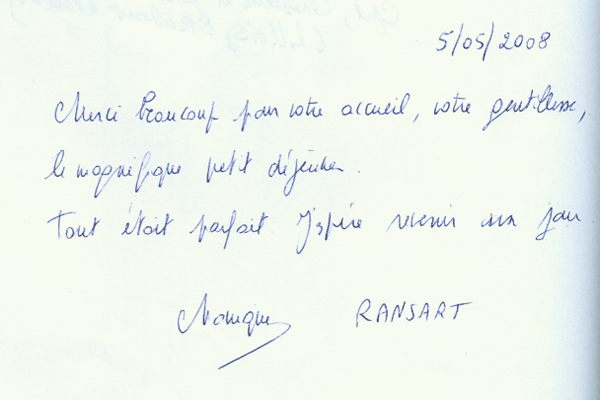 5/05/2008
Merci beaucoup pour votre accueil, votre gentillesse,
le magnifique petit déjeuner.
Tout était parfait J'espère revenir un jour
Monique RANSART